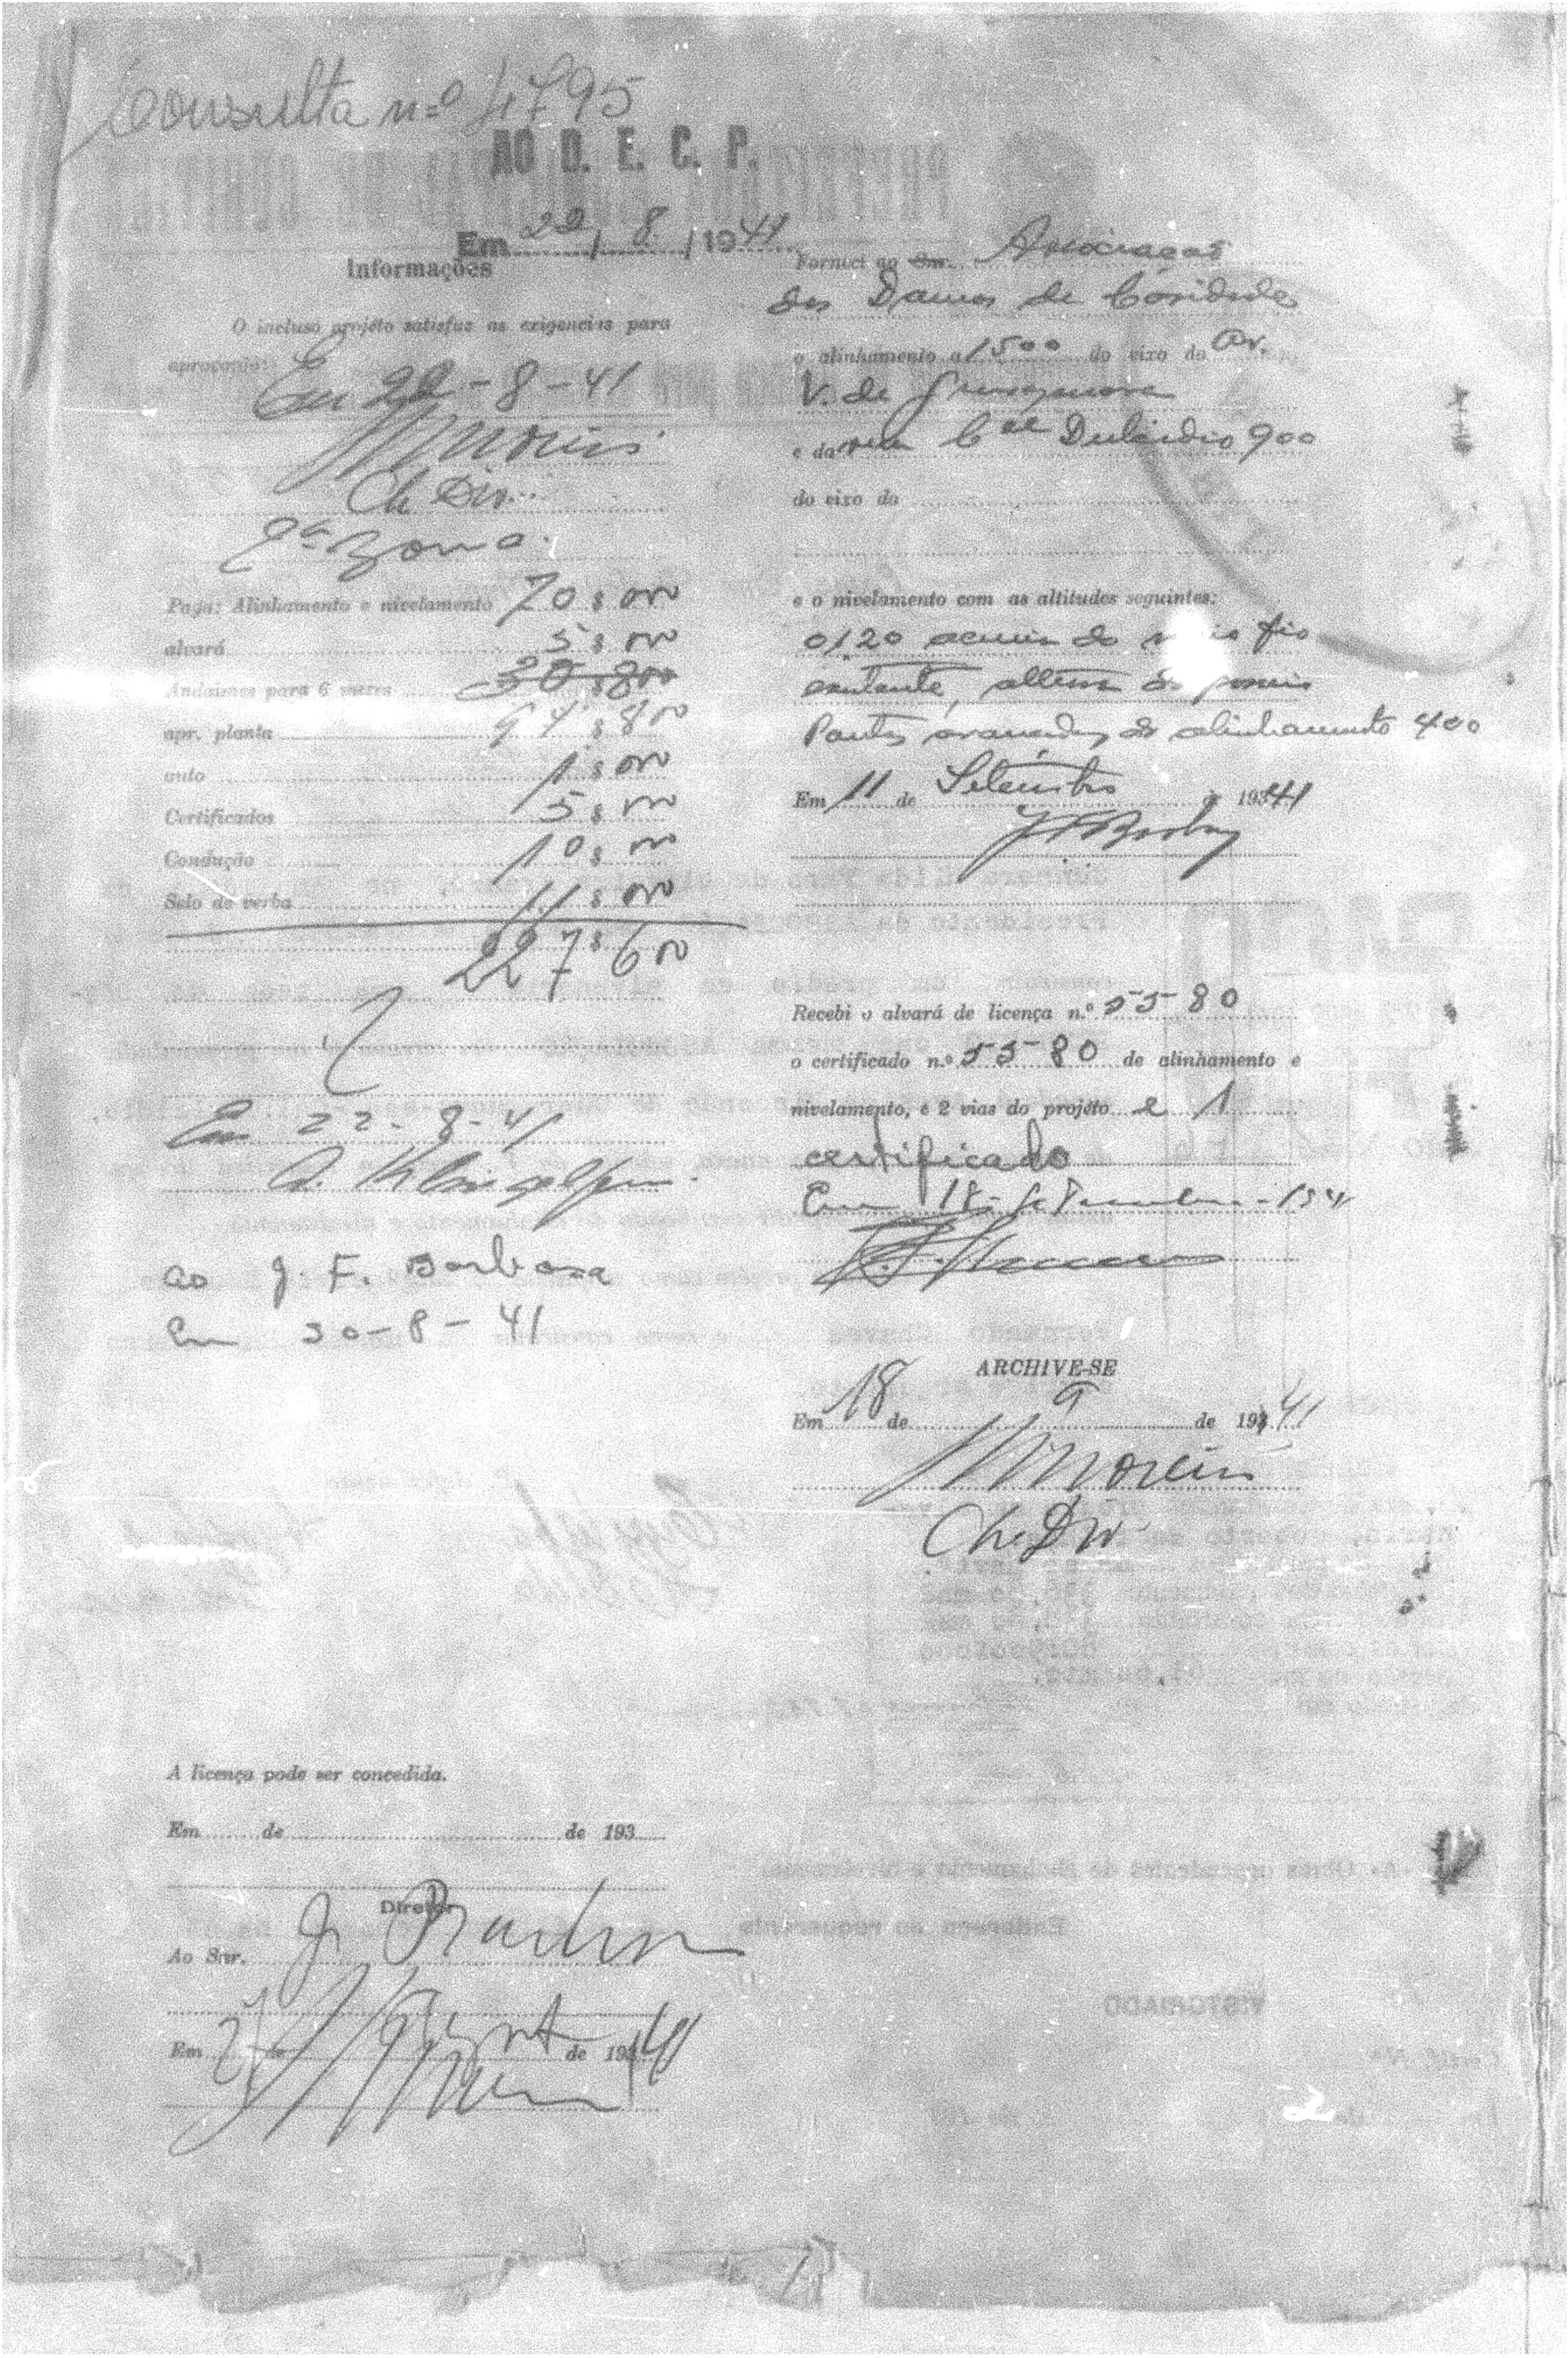 Consulta nº 4795
AO D. E. C. P.
Em 22 / 8 / 1941
Informações
O incluso projéto satisfaz as exigencias para
aprovação:
Em 22-8-41
Ch Div.
2ª zona.
Paga: Alinhamento e nivelamento 70$000
alvará 5$000
Andaimes para 6 mezes 30$800
apr. planta 94$800
auto 1$000
Certificados 5$000
Condução 10$000
Selo de verba 11$000
227$600
Em 22-8-41
ao J. F. Barbosa
Em 30-8-41
A licença pode ser concedida.
Em de de 193
Diretor
Ao Snr. J. Barbosa
Em de de 1941
Forneci ao Snr. Associação
das Damas de Caridade
o alinhamento a 1500 do eixo da Av.
V. de Guarapuava
e da rua Cel Dulcidio 900
do eixo da
e o nivelamento com as altitudes seguintes:
0,20 acima do meio fio
existente,
alinhamento 400
Em 11 de Setembro 1941
Recebi o alvará de licença n.º 5580
o certificado n.º 5580 de alinhamento e
nivelamento, e 2 vias do projéto e 1
certificado
Em 18 Setembro-1941
ARCHIVE-SE
Em 18 de 9 de 1941
Ch. Div